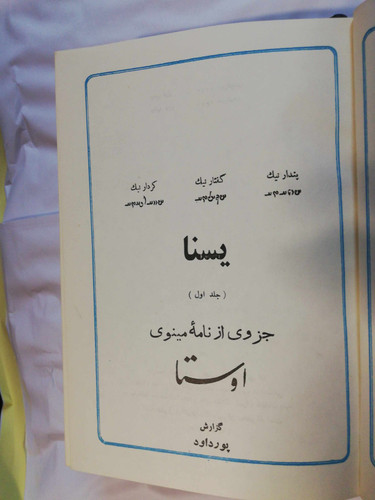 پندار نیک گفتار نیک کردار نیک
یسنا
(جلد اول)
جزوی از نامهٔ مینوی
اوستا
گزارش
پورداود